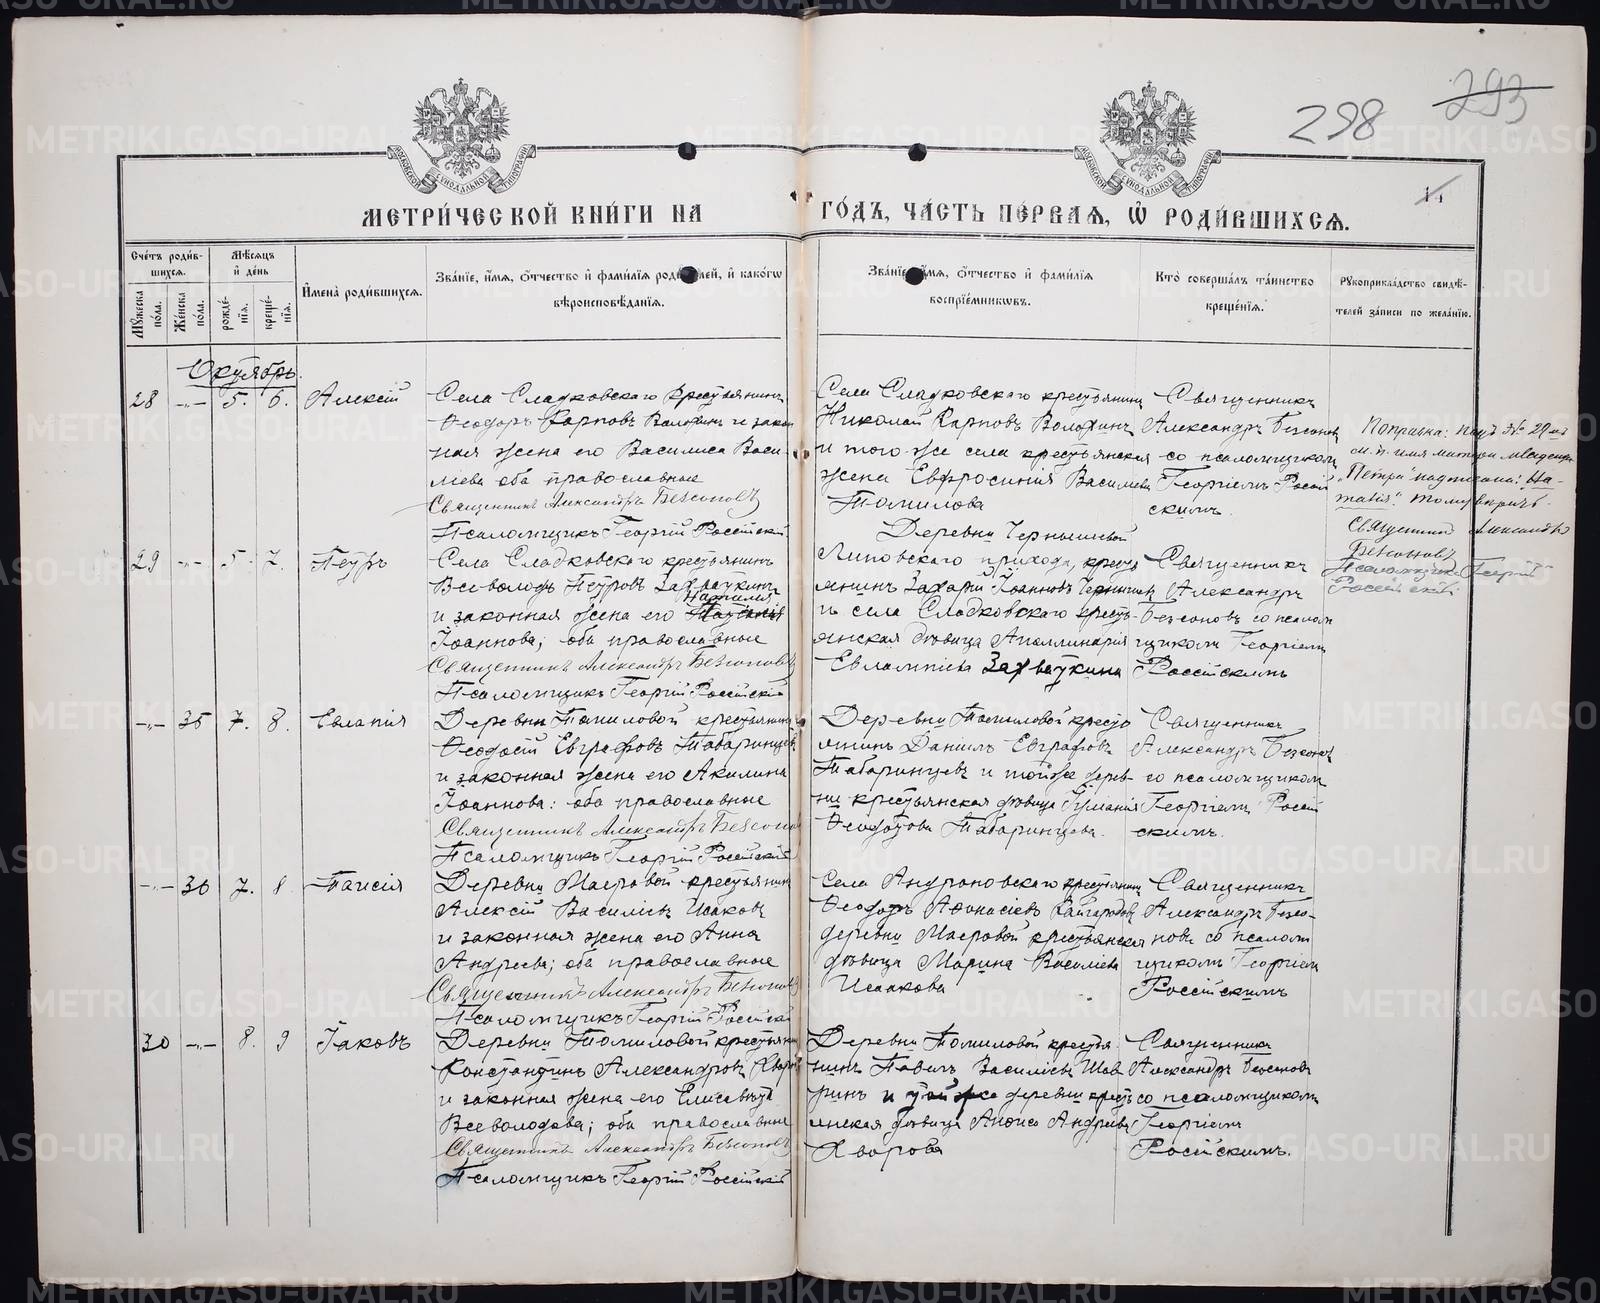 298
293
МЕТРИ́ЧЕСКОЙ КНИ́ГИ НА ГО́ДЪ, ЧА́СТЬ ПЕ́РВАЯ, Ѡ҆ РОДИ́ВШИХСЯ.
Сче́тъ роди́в-
шихся.
Мѣ́сяцъ
и҆ де́нь
Му́жеска по́ла.
Же́нска по́ла.
рожде́-
нія.
креще́-
нія.
И҆мена̀ роди́вшихся.
Зва́нїе, и҆́мя, ѻ҆́тчество и҆ фами́лїя роди́телей, и҆ како́гѡ
вѣроисповѣ́данїя.
Зва́нїе, и҆́мя, ѻ҆́тчество и҆ фами́лїя
воспрїе́мникѡвъ.
Кто̀ соверша́лъ та́инство
креще́нїя.
Рукоприкла́дство свидѣ́-
телей за́писи по жела́нїю.
Октябрь.
28 -„- 5. 6. Алексій
Села Сладковскаго крестьянинъ
Ѳеодоръ Карповъ Волохинъ и закон
ная жена его Василиса Васи-
лiева оба православные
Священникъ Александръ Безсоновъ
Псаломщикъ Георгій Россійскій
Села Сладковскаго крестьянинъ
Николай Карповъ Волохинъ
и того-же села крестьянская
жена Евфросинія Васильева
Томилова
Священникъ
Александръ Безсонов
со псаломщикомъ
Георгіемъ Россій
скимъ.
Поправка: подъ № 29мъ
м.п. имя матери младенца
„Петра" надписана: „На-
талія". Тому вѣрить.
Священникъ Александръ
Безсоновъ
Псаломщикъ Георгій
Россійскій
29 -„- 5. 7. Петръ
Села Сладковскаго крестьянинъ
Всеволодъ Петровъ Захваткинъ
Наталия
и законная жена его
Іоаннова; оба православные
Священникъ Александръ Безсоновъ
Псаломщикъ Георгій Россійскій
Деревни Чернышевой
Липовскаго прихода, кресть
янинъ Захарій Іоанновъ
и села Сладковскаго кресть-
янская дѣвица Аполлинарія
Евлампіева Захваткина
Священникъ
Александръ
Безсоновъ со псалом
щикомъ Георгіемъ
Россійскимъ
-„- 35 7. 8. Евлапія
Деревни Томиловой крестьянинъ
Ѳеодосій Евграфовъ Табаринцевъ
и законная жена его Акилина
Іоаннова: оба православные
Священникъ Александръ Безсонов
Псаломщикъ Георгій Россійскій
Деревни Томиловой кресть
янинъ Даніилъ Евграфовъ
Табаринцевъ и той-же дерев-
ни крестьянская дѣвица Іуліанія
Ѳеодотова Табаринцева.
Священникъ
Александръ Безсонов
со псаломщикомъ
Георгіемъ Россій
скимъ.
-„- 36 7. 8 Таисія
Деревни Маіровой крестьянинъ
Алексій Васильевъ Исаковъ
и законная жена его Анна
Андреева; оба православные
Священникъ Александръ Безсоновъ
Псаломщикъ Георгій Россійскій
Села Андроновскаго крестьянинъ
Ѳеодоръ Аѳонасіевъ Кайгородовъ
деревни Маіровой крестьянская
дѣвица Марина Васильева
Исакова
Священникъ
Александръ Безсо-
новъ со псалом
щикомъ Георгіемъ
Россійскимъ
30 -„- 8. 9 Іаковъ
Деревни Томиловой крестьянинъ
Константинъ Александровъ Яворов
и законная жена его Елисавета
Всеволодова; оба православные
Священникъ Александръ Безсоновъ
Псаломщикъ Георгій Россійскій
Деревни Томиловой крестья
нинъ Павелъ Васильевъ Шав
ринъ и той-же деревни кресть
янская дѣвица Анфиса Андреева
Яворова
Священникъ
Александръ Безсоновъ
со псаломщикомъ
Георгіемъ
Россійскимъ.
METRIKI.GASO-URAL.RU